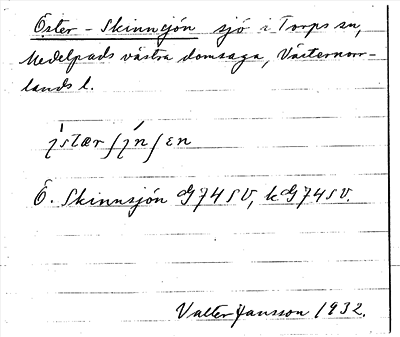 Öster-Skinnsjön sjö i Torps sn,
Medelpads västra domsaga, Västernorr-
lands l.
Ö. Skinnsjön G74SV, kG74SV.
Valter Jansson 1932.